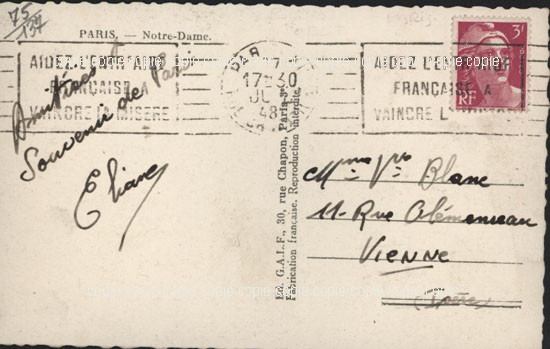 75/137
PARIS. — Notre-Dame.
AIDEZ L'ENFANCE
FRANÇAISE A
VAINCRE LA MISÈRE
PARIS
17 30
48
AIDEZ L'ENFANCE
FRANÇAISE A
VAINCRE LA
3F
RF
Amitiés
Souvenir de Paris
Eliane
Ed. G.A.L.F., 30, rue Chapon, Paris-3e
Fabrication française. Reproduction interdite.
Mme Vve Blanc
11 - Rue Clémenceau
VIENNE
(Isère)
copie copie copie copie